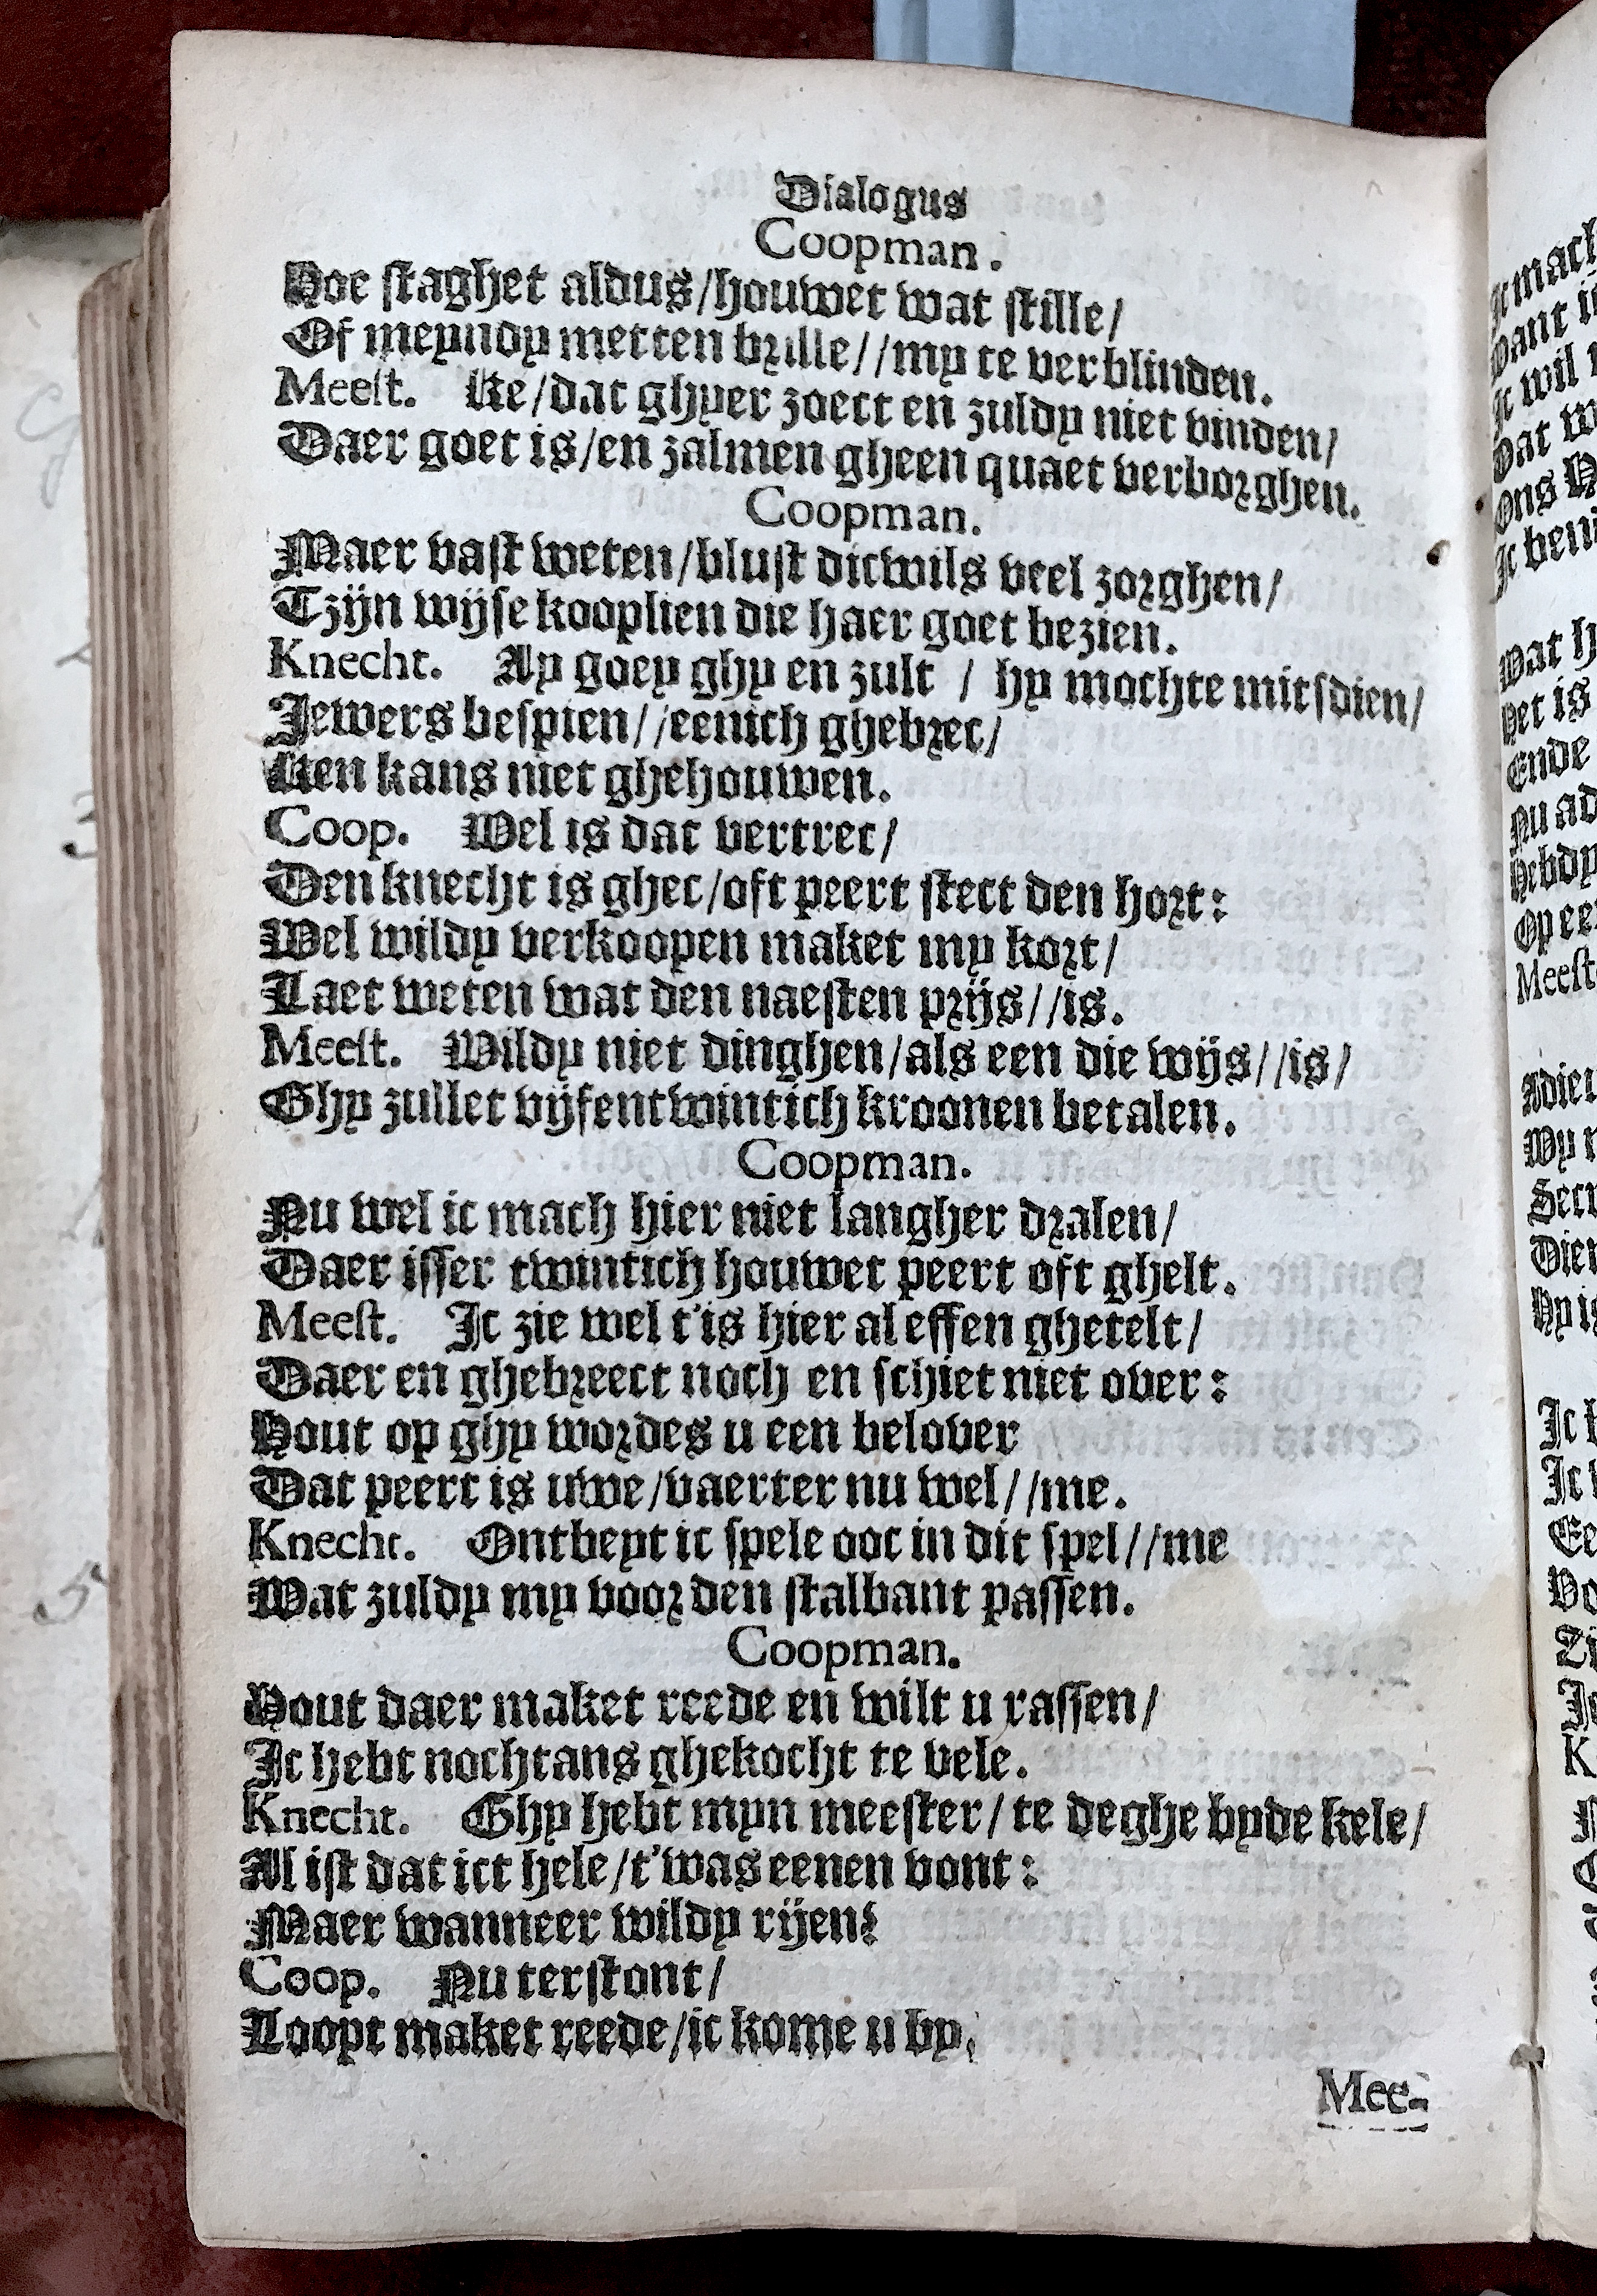 Dialogus
Coopman.
Hoe staghet aldus/houwet wat stille/
Of meyndy metten brille//my te verblinden.
Meest. Ke/dat ghyer zoect en zuldy niet vinden/
Daer goet is/en zalmen gheen quaet verborghen.
Coopman.
Maer vast weten/blust dicwils veel zorghen/
Tzijn wijse kooplien die haer goet bezien.
Knecht. Ay goey ghy en zult / hy mochte mitsdien/
Jewers bespien//eenich ghebrec/
Ken kans niet ghehouwen.
Coop. Wel is dat vertrec/
Den knecht is ghec/oft peert stect den hort:
Wel wildy verkoopen maket my kort/
Laet weten wat den naesten prijs//is.
Meest. Wildy niet dinghen/als een die wijs//is/
Ghy zullet vijfentwintich kroonen betalen.
Coopman.
Nu wel ic mach hier niet langher dralen/
Daer isser twintich houwet peert oft ghelt.
Meest. Jc zie wel t'is hier al effen ghetelt/
Daer en ghebreect noch en schiet niet over:
Hout op ghy wordes u een belover
Dat peert is uwe/vaerter nu wel//me.
Knecht. Ontbeyt ic spele ooc in dit spel//me
Wat zuldy my voor den stalbant passen.
Coopman.
Hout daer maket reede en wilt u rassen/
Jc hebt nochtans ghekocht te vele.
Knecht. Ghy hebt myn meester/ te deghe byde kele/
Al ist dat ict hele/t'was eenen vont:
Maer wanneer wildy rijen?
Coop. Nu terstont/
Loopt maket reede/ic kome u by.
Mee-